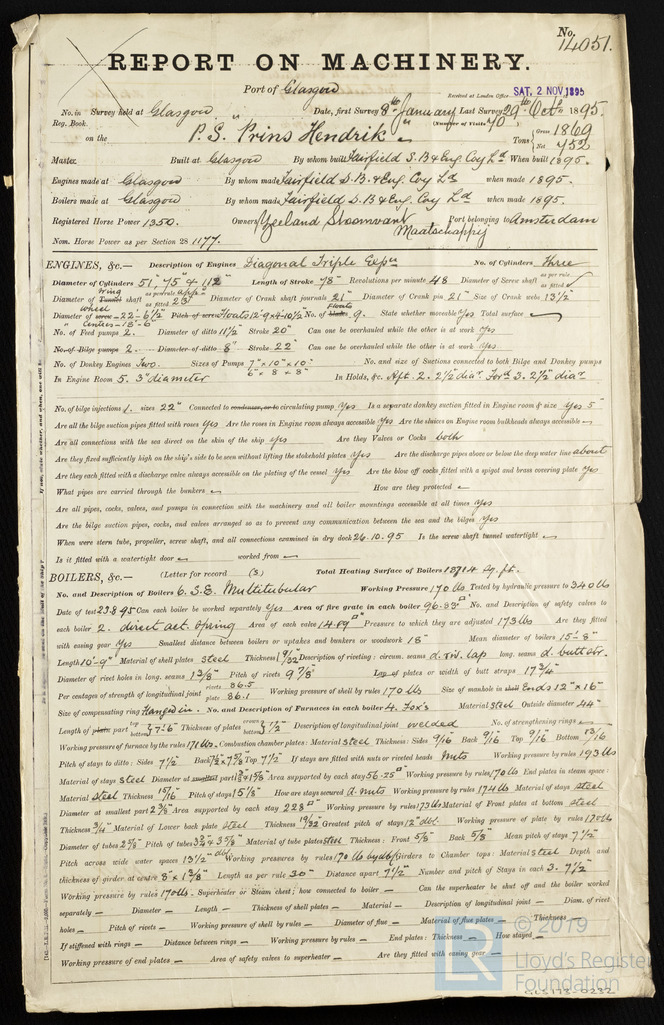 No. 14051.
REPORT ON MACHINERY.
Port of Glasgow
Received at London Office SAT. 2 NOV 1895
No. in Survey held at Glasgow Date, first Survey 8th January Last Survey 29th Octr 1895.
Reg. Book. (Number of Visits 40)
on the P.S. "Prins Hendrik" Tons Gross 1869 Net
Master Built at Glasgow By whom built Fairfield S.B & Eng. Coy Ld When built 1895.
Engines made at Glasgow By whom made Fairfield S.B & Eng. Coy Ld when made 1895.
Boilers made at Glasgow By whom made Fairfield S.B & Eng. Coy Ld when made 1895.
Registered Horse Power 1350. Owners Zeeland Stoomvaart Maatschappij Port belonging to Amsterdam
Nom. Horse Power as per Section 28 1177.
ENGINES, &c.— Description of Engines Diagonal Triple Expn No. of Cylinders Three
Diameter of Cylinders 51" 75" & 112" Length of Stroke 78" Revolutions per minute 48 Diameter of Screw shaft as per rule as fitted
Diameter of Tunnel shaft as per rule as fitted 23" Diameter of Crank shaft journals 21" Diameter of Crank pin 21" Size of Crank webs 13½
Diameter of screw 22-6½ Pitch of screw Floats 12-9 x 4-10½ No. of blades Floats 9. State whether moveable Yes Total surface
Wheel Centres 18-6
No. of Feed pumps 2. Diameter of ditto 11½ Stroke 20" Can one be overhauled while the other is at work Yes
No. of Bilge pumps 2. Diameter of ditto 8" Stroke 22" Can one be overhauled while the other is at work Yes
No. of Donkey Engines Two. Sizes of Pumps 7" x 10" x 10" 6" x 8" x 8" No. and size of Suctions connected to both Bilge and Donkey pumps
In Engine Room 5. 3" diameter In Holds, &c. Aft. 2. 2½ diar. Ford 3. 2½ diar
No. of bilge injections 1. sizes 22" Connected to condenser, or to circulating pump Yes Is a separate donkey suction fitted in Engine room & size Yes 5"
Are all the bilge suction pipes fitted with roses Yes Are the roses in Engine room always accessible Yes Are the sluices on Engine room bulkheads always accessible
Are all connections with the sea direct on the skin of the ship yes Are they Valves or Cocks both
Are they fixed sufficiently high on the ship's side to be seen without lifting the stokehold plates Yes Are the discharge pipes above or below the deep water line about
Are they each fitted with a discharge valve always accessible on the plating of the vessel Yes Are the blow off cocks fitted with a spigot and brass covering plate Yes
What pipes are carried through the bunkers How are they protected
Are all pipes, cocks, valves, and pumps in connection with the machinery and all boiler mountings accessible at all times Yes
Are the bilge suction pipes, cocks, and valves arranged so as to prevent any communication between the sea and the bilges Yes
When were stern tube, propeller, screw shaft, and all connections examined in dry dock 26.10.95 Is the screw shaft tunnel watertight
Is it fitted with a watertight door worked from
BOILERS, &c.— (Letter for record (S) Total Heating Surface of Boilers 18714 Sq. ft.
No. and Description of Boilers 6. S.E. Multitubular Working Pressure 170 lbs Tested by hydraulic pressure to 340 lbs
Date of test 23.8.95 Can each boiler be worked separately Yes Area of fire grate in each boiler No. and Description of safety valves to
each boiler 2. direct act. Spring Area of each valve 14.89 Pressure to which they are adjusted 173 lbs Are they fitted
with easing gear Yes Smallest distance between boilers or uptakes and bunkers or woodwork 18" Mean diameter of boilers 15-8"
Length 10-9" Material of shell plates steel Thickness 1 9/32 Description of riveting: circum. seams d. riv. lap long. seams d. butt str.
Diameter of rivet holes in long. seams 1 3/8 Pitch of rivets 9 7/8 Lap of plates or width of butt straps 17¾
Per centages of strength of longitudinal joint rivets 86.5 plate 86.1 Working pressure of shell by rules 170 lbs Size of manhole in shell Ends 12" x 16"
Size of compensating ring Flanged in. No. and Description of Furnaces in each boiler 4. Fox's Material Steel Outside diameter 44"
Length of plain part top bottom 7-6 Thickness of plates crown bottom Description of longitudinal joint welded No. of strengthening rings
Working pressure of furnace by the rules 171 lbs. Combustion chamber plates: Material steel Thickness: Sides 9/16 Back 9/16 Top 9/16 Bottom 13/16
Pitch of stays to ditto: Sides 7½ Back Top 7½ If stays are fitted with nuts or riveted heads Nuts Working pressure by rules 193 lbs
Material of stays Steel Diameter at smallest part Area supported by each stay 56.25 Working pressure by rules 170 lbs End plates in steam space:
Material Steel Thickness 15/16 Pitch of stays 15 1/8 How are stays secured d. nuts Working pressure by rules 174 lbs Material of stays steel
Diameter at smallest part 2 3/8 Area supported by each stay 228 Working pressure by rules 173 lbs Material of Front plates at bottom steel
Thickness ¾ Material of Lower back plate Steel Thickness 19/32 Greatest pitch of stays 12" dbl. Working pressure of plate by rules 170 lbs
Diameter of tubes Pitch of tubes Material of tube plates steel Thickness: Front 5/8 Back 5/8 Mean pitch of stays 7½
Pitch across wide water spaces 13½ dbl Working pressures by rules 170 lbs Girders to Chamber tops: Material steel Depth and
thickness of girder at centre 8" x 1 3/8 Length as per rule 30" Distance apart 7½ Number and pitch of Stays in each 3. 7½
Working pressure by rules 170 lbs. Superheater or Steam chest; how connected to boiler Can the superheater be shut off and the boiler worked
separately Diameter Length Thickness of shell plates Material Description of longitudinal joint Diam. of rivet
holes Pitch of rivets Working pressure of shell by rules Diameter of flue Material of flue plates Thickness
If stiffened with rings Distance between rings Working pressure by rules End plates: Thickness How stayed
Working pressure of end plates Area of safety valves to superheater Are they fitted with easing gear
© 2019
Lloyd's Register
Foundation
LR